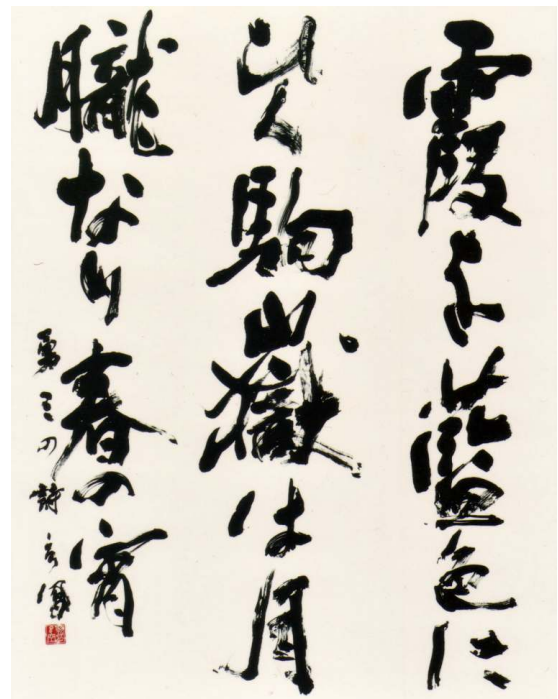 霞よ藍色に
咲く駒嶽は月
朧なり春の宵
勇三の詩